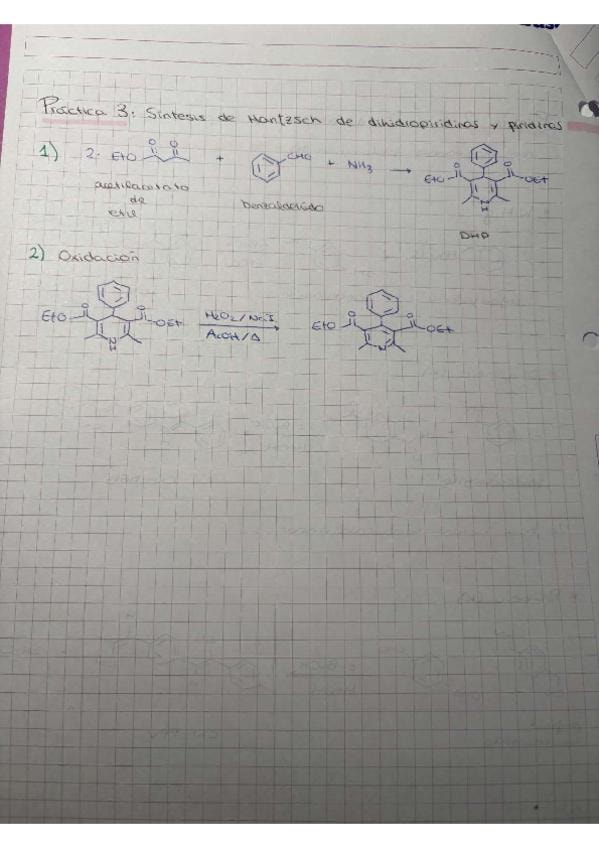 Práctica 3: Síntesis de Hantzsch de dihidropiridinas y piridinas
1) 2. EtO O O + CHO + NH3 → EtO O O OEt N H
acetilacetato benzaldehído
de
etilo
DHP
2) Oxidación
EtO O O OEt N H H2O2/NaI EtO O O OEt N
AcOH/Δ